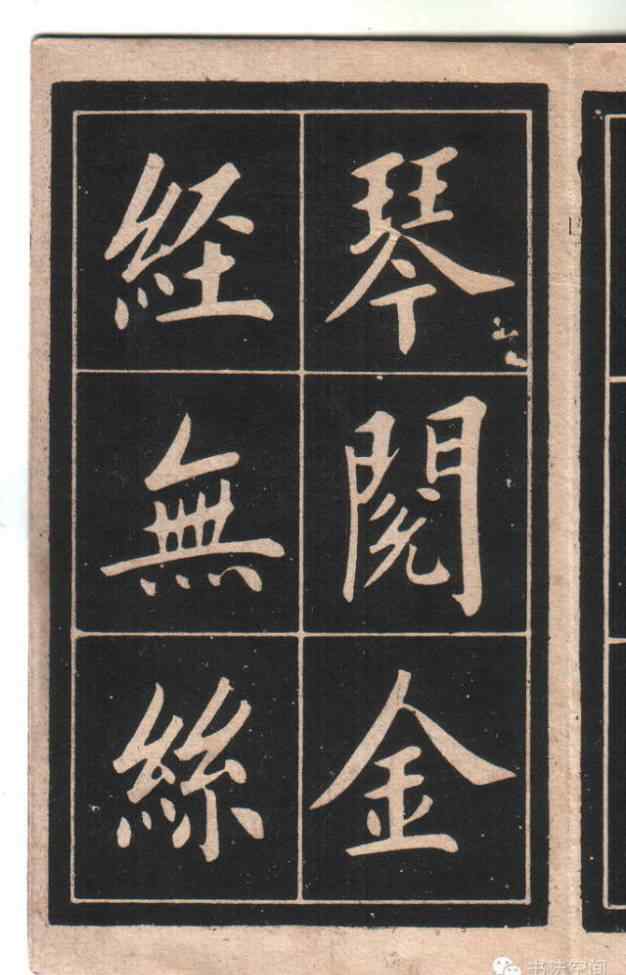 琴閱金
経無絲
书法空间